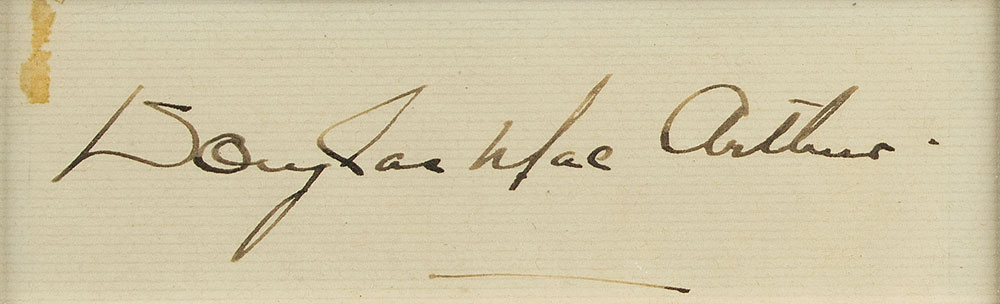 Douglas MacArthur.